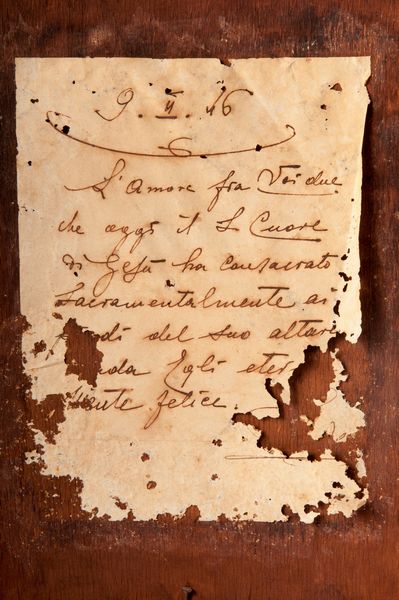 9. II. 16
L'Amore fra Voi due
che oggi il S. Cuore
di Gesù ha consacrato
sacramentalmente ai
di del suo altare
da Egli eter
mente felice.